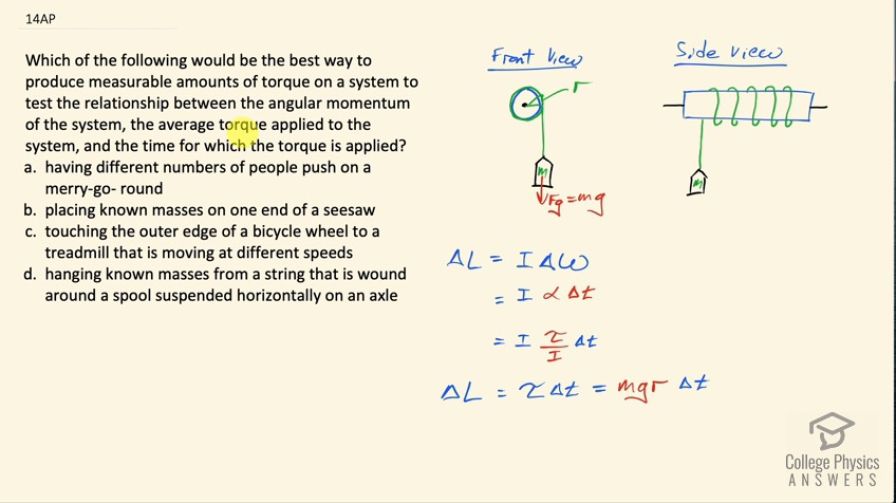 14AP
Which of the following would be the best way to
produce measurable amounts of torque on a system to
test the relationship between the angular momentum
of the system, the average torque applied to the
system, and the time for which the torque is applied?
a. having different numbers of people push on a
merry-go- round
b. placing known masses on one end of a seesaw
c. touching the outer edge of a bicycle wheel to a
treadmill that is moving at different speeds
d. hanging known masses from a string that is wound
around a spool suspended horizontally on an axle
Front View
r
m
Fg = mg
Side View
m
ΔL = I Δω
= I α Δt
= I τ/I Δt
ΔL = τ Δt = mgr Δt
College Physics
ANSWERS